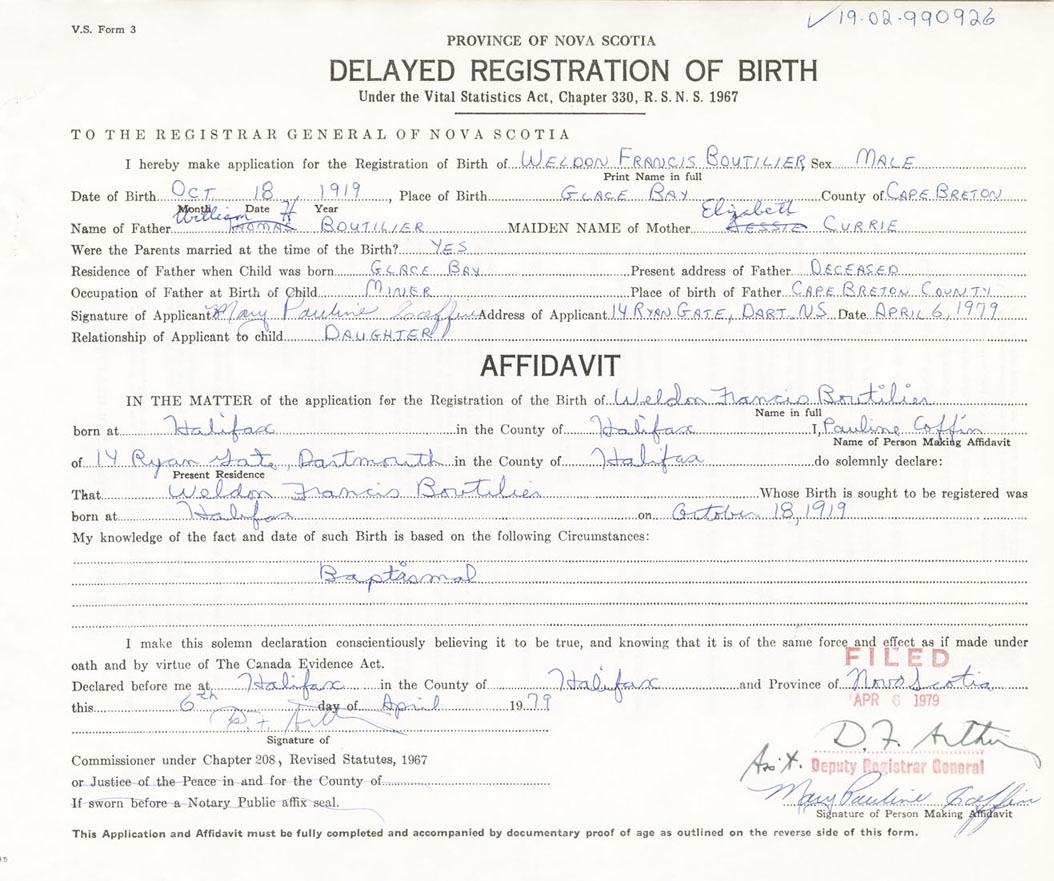 V.S. Form 3
✓19-02-990926
PROVINCE OF NOVA SCOTIA
DELAYED REGISTRATION OF BIRTH
Under the Vital Statistics Act, Chapter 330, R. S. N. S. 1967
TO THE REGISTRAR GENERAL OF NOVA SCOTIA
I hereby make application for the Registration of Birth of WELDON FRANCIS BOUTILIER, Sex MALE
Print Name in full
Date of Birth OCT 18 1919, Place of Birth GLACE BAY County of CAPE BRETON
Month Date Year
William H Elizabeth
Name of Father THOMAS BOUTILIER MAIDEN NAME of Mother JESSIE CURRIE
Were the Parents married at the time of the Birth? YES
Residence of Father when Child was born GLACE BAY Present address of Father DECEASED
Occupation of Father at Birth of Child MINER Place of birth of Father CAPE BRETON COUNTY
Signature of Applicant Mary Pauline Coffin Address of Applicant 14 RYAN GATE, DART. NS Date APRIL 6, 1979
Relationship of Applicant to child DAUGHTER
AFFIDAVIT
IN THE MATTER of the application for the Registration of the Birth of Weldon Francis Boutilier
Name in full
born at Halifax in the County of Halifax I, Pauline Coffin
Name of Person Making Affidavit
of 14 Ryan Gate, Dartmouth in the County of Halifax do solemnly declare:
Present Residence
That Weldon Francis Boutilier Whose Birth is sought to be registered was
born at Halifax on October 18, 1919
My knowledge of the fact and date of such Birth is based on the following Circumstances:
Baptismal
I make this solemn declaration conscientiously believing it to be true, and knowing that it is of the same force and effect as if made under
oath and by virtue of The Canada Evidence Act.
FILED
Declared before me at Halifax in the County of Halifax and Province of Nova Scotia
this 6th day of April 1979
APR 6 1979
D. F. Arthur
Signature of
D. F. Arthur
Commissioner under Chapter 208, Revised Statutes, 1967
Ass't. Deputy Registrar General
or Justice of the Peace in and for the County of
Mary Pauline Coffin
If sworn before a Notary Public affix seal.
Signature of Person Making Affidavit
This Application and Affidavit must be fully completed and accompanied by documentary proof of age as outlined on the reverse side of this form.